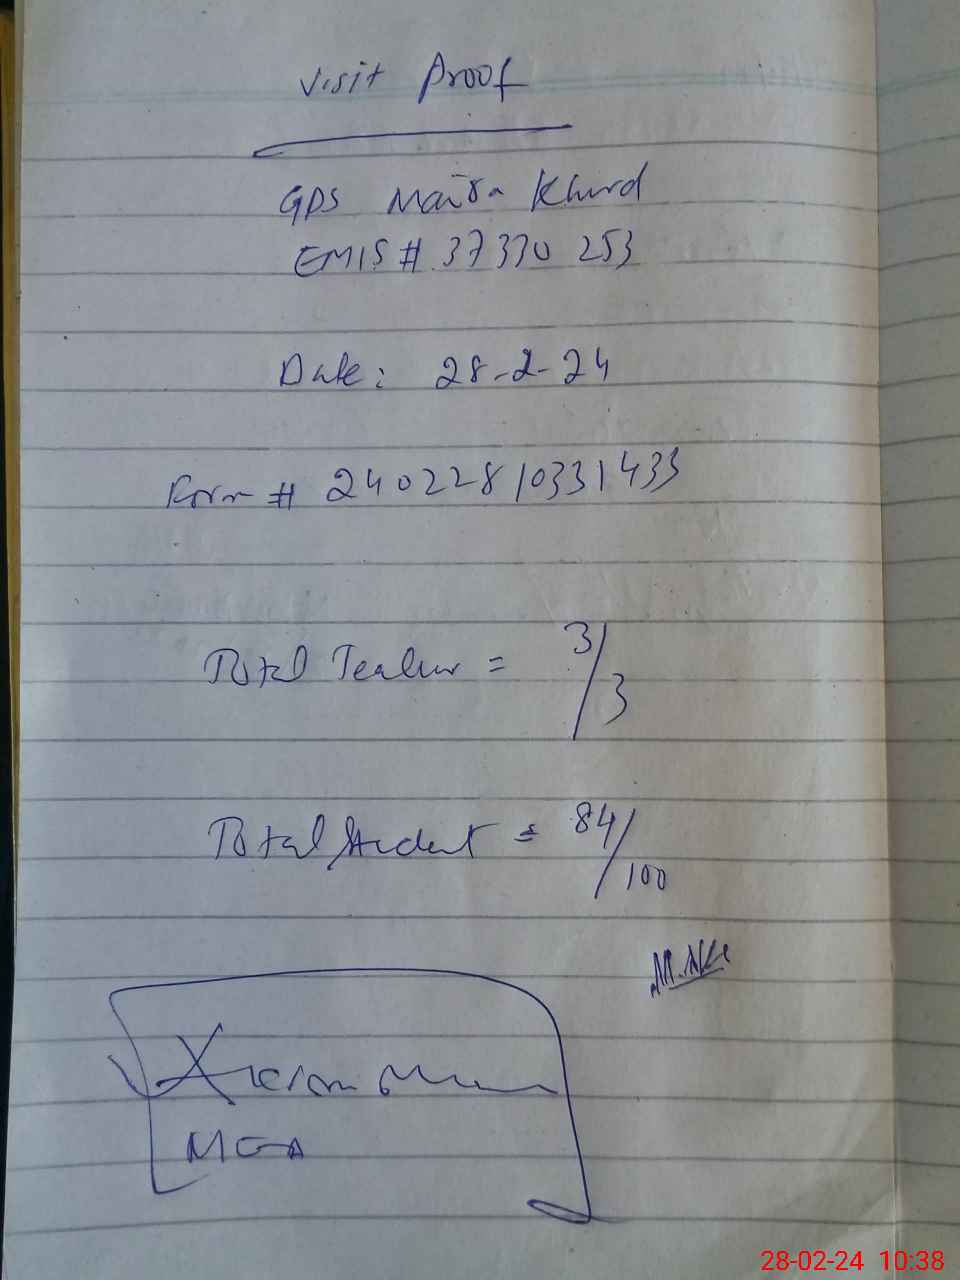 Visit Proof
GPS Maira Khurd
EMIS # 37330253
Date: 28-2-24
Form # 24022810331433
Total Teacher = 3/3
Total Student = 84/100
MEA
28-02-24 10:38